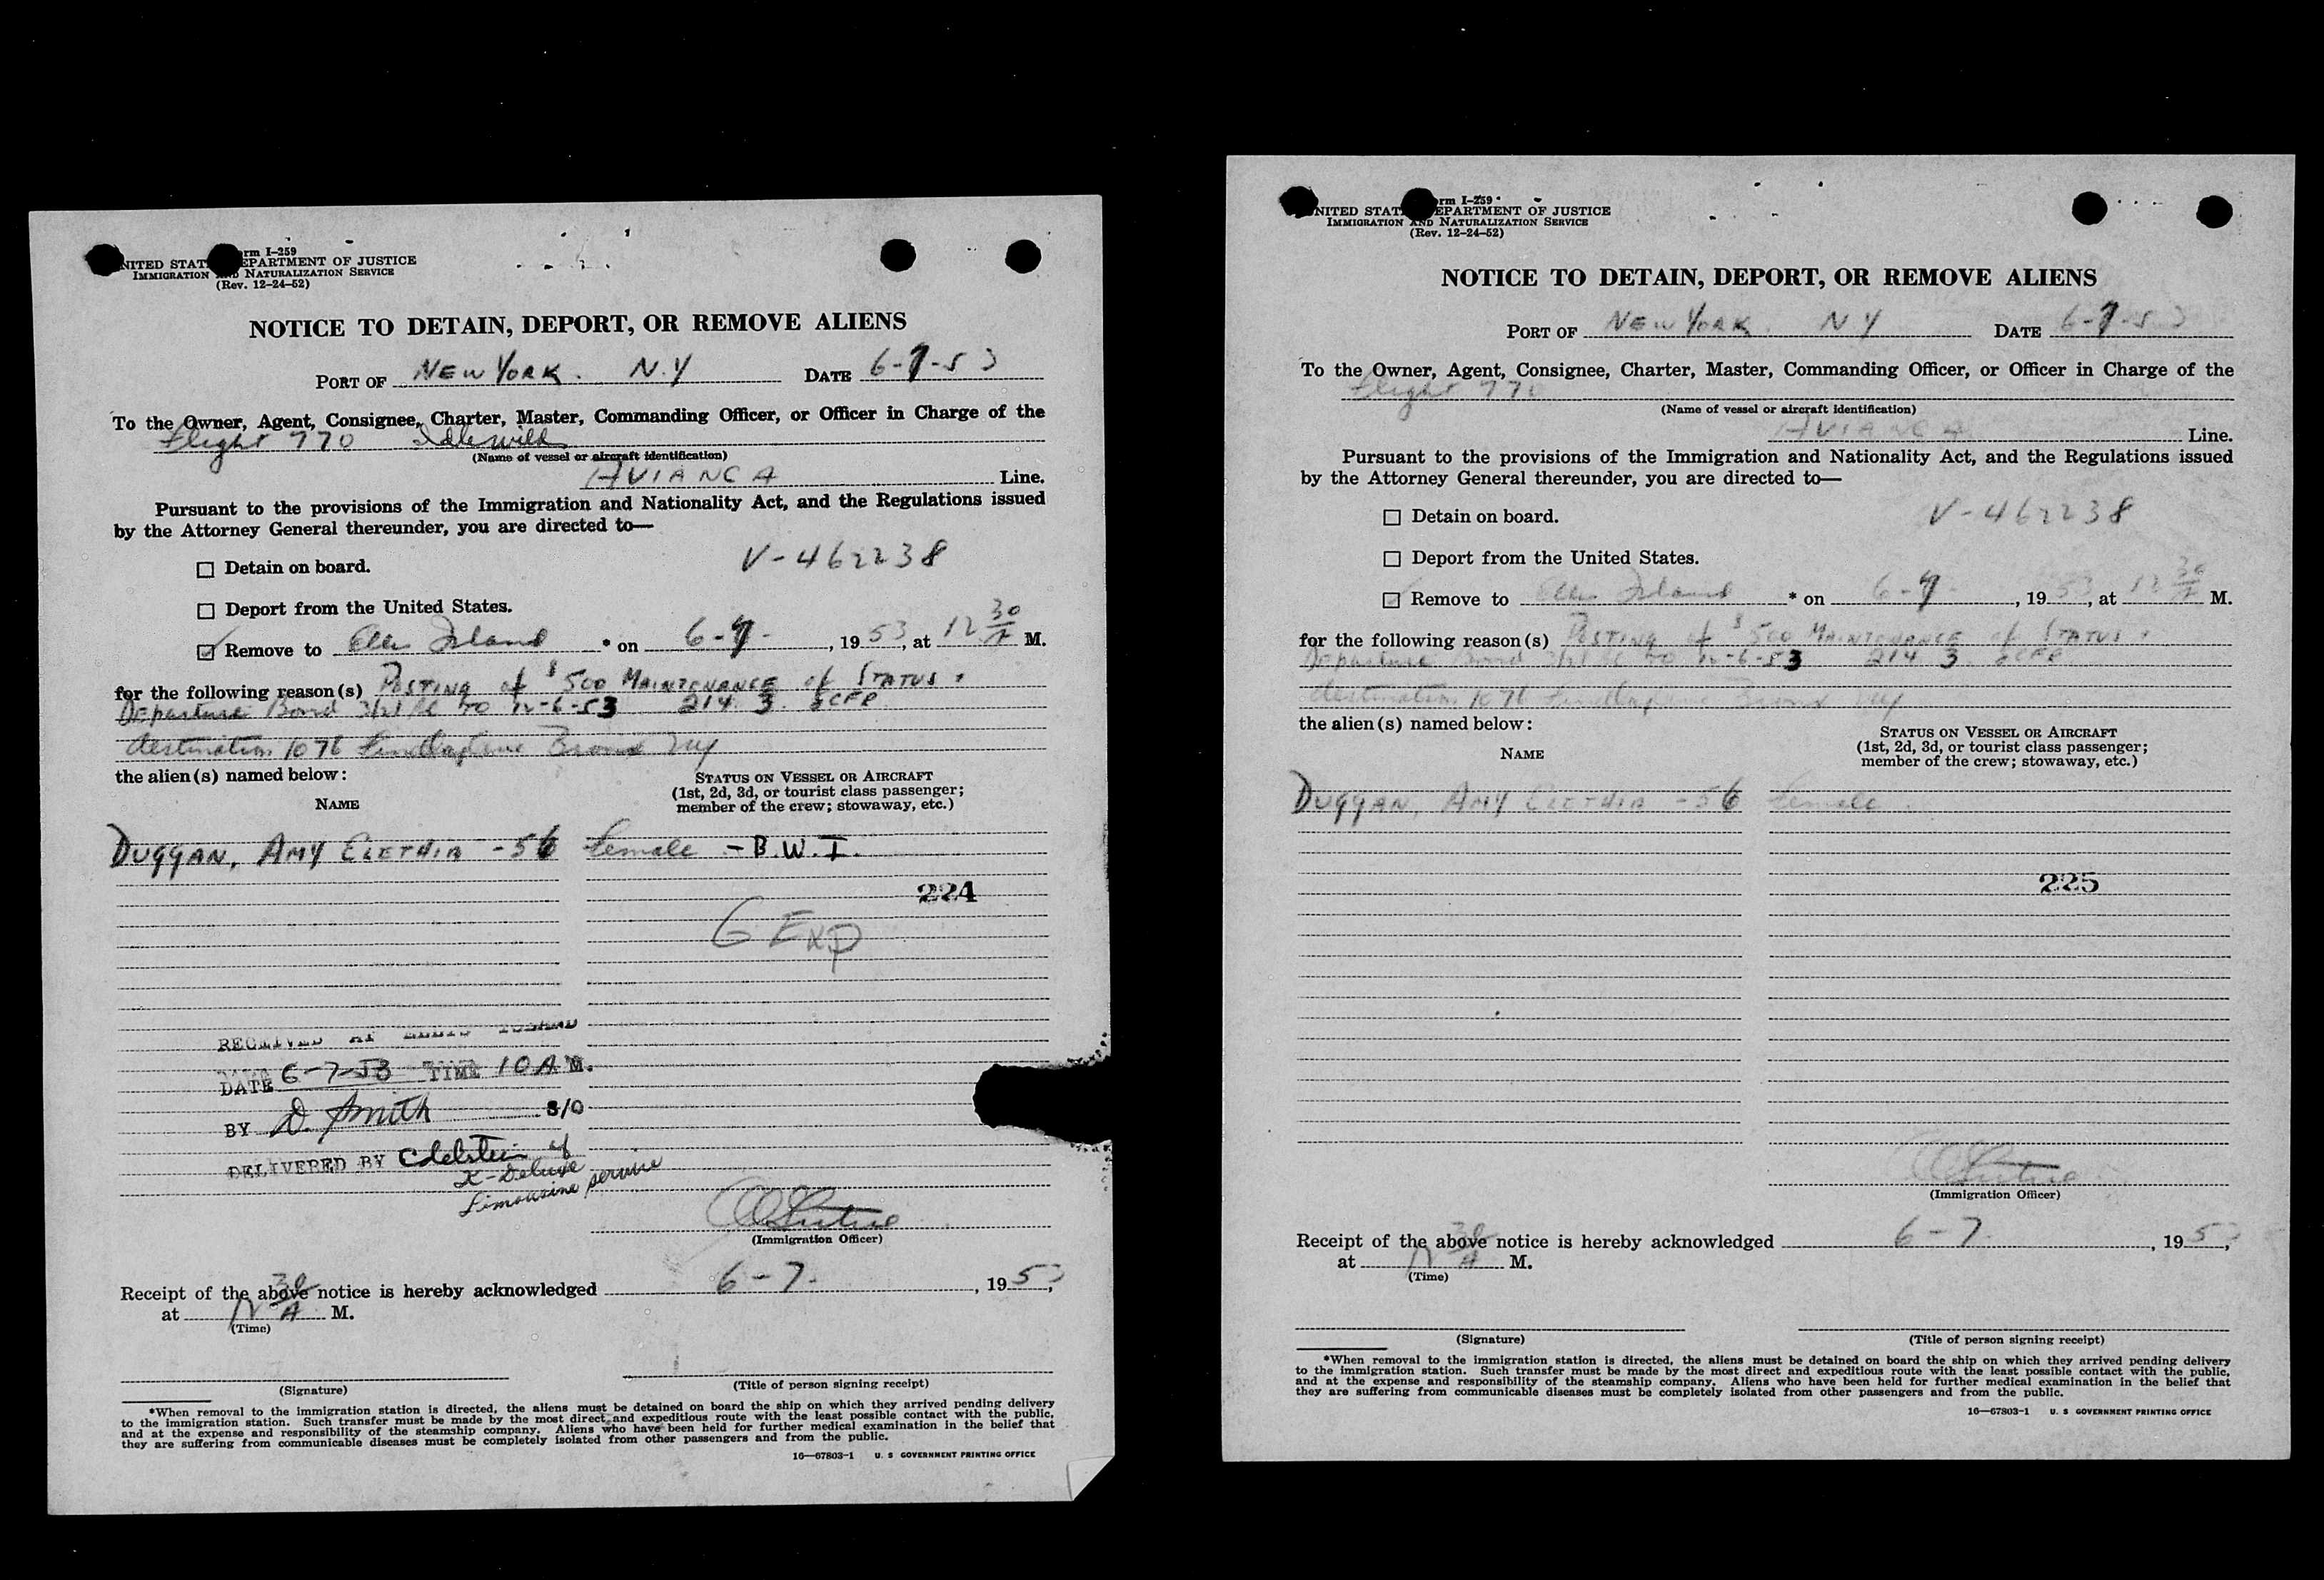 rm I-259
NITED STAT EPARTMENT OF JUSTICE
IMMIGRATION AND NATURALIZATION SERVICE
(Rev. 12-24-52)
NOTICE TO DETAIN, DEPORT, OR REMOVE ALIENS
PORT OF NEW YORK. N.Y DATE 6-7-53
To the Owner, Agent, Consignee, Charter, Master, Commanding Officer, or Officer in Charge of the
Flight 770 Idlewild
(Name of vessel or aircraft identification)
AVIANCA Line.
Pursuant to the provisions of the Immigration and Nationality Act, and the Regulations issued
by the Attorney General thereunder, you are directed to—
Detain on board. V-462238
Deport from the United States.
Remove to Ellis Island * on 6-7-, 1953, at 12 30 A M.
for the following reason(s) POSTING of $500 MAINTENANCE of STATUS.
Departure Bond TO 12-6-53 214. 3.
destination 1076 Bronx NY
the alien(s) named below:
NAME
STATUS ON VESSEL OR AIRCRAFT
(1st, 2d, 3d, or tourist class passenger;
member of the crew; stowaway, etc.)
DUGGAN, AMY ELETHIA -56 female - B.W.I.
224
6 Exp
RECEIVED AT ELLIS ISLAND
DATE 6-7-53 TIME 10 A M.
BY D. Smith S/O
DELIVERED BY Edelstein of
X-Deluxe
Limousine service
(Immigration Officer)
Receipt of the above notice is hereby acknowledged 6-7-, 1953,
at 12 30 A M.
(Time)
(Signature)
(Title of person signing receipt)
*When removal to the immigration station is directed, the aliens must be detained on board the ship on which they arrived pending delivery
to the immigration station. Such transfer must be made by the most direct and expeditious route with the least possible contact with the public,
and at the expense and responsibility of the steamship company. Aliens who have been held for further medical examination in the belief that
they are suffering from communicable diseases must be completely isolated from other passengers and from the public.
16—67803-1 U. S GOVERNMENT PRINTING OFFICE
rm I-259
NITED STAT EPARTMENT OF JUSTICE
IMMIGRATION AND NATURALIZATION SERVICE
(Rev. 12-24-52)
NOTICE TO DETAIN, DEPORT, OR REMOVE ALIENS
PORT OF NEW YORK. N Y DATE 6-7-53
To the Owner, Agent, Consignee, Charter, Master, Commanding Officer, or Officer in Charge of the
Flight 770
(Name of vessel or aircraft identification)
AVIANCA Line.
Pursuant to the provisions of the Immigration and Nationality Act, and the Regulations issued
by the Attorney General thereunder, you are directed to—
Detain on board. V-462238
Deport from the United States.
Remove to Ellis Island * on 6-7-, 1953, at 12 30 A M.
for the following reason(s) POSTING of $500 MAINTENANCE of STATUS.
Departure Bond TO 12-6-53 214. 3.
destination 1076 Bronx NY
the alien(s) named below:
NAME
STATUS ON VESSEL OR AIRCRAFT
(1st, 2d, 3d, or tourist class passenger;
member of the crew; stowaway, etc.)
DUGGAN, AMY ELETHIA -56 female
225
(Immigration Officer)
Receipt of the above notice is hereby acknowledged 6-7-, 1953,
at 12 30 A M.
(Time)
(Signature)
(Title of person signing receipt)
*When removal to the immigration station is directed, the aliens must be detained on board the ship on which they arrived pending delivery
to the immigration station. Such transfer must be made by the most direct and expeditious route with the least possible contact with the public,
and at the expense and responsibility of the steamship company. Aliens who have been held for further medical examination in the belief that
they are suffering from communicable diseases must be completely isolated from other passengers and from the public.
16—67803-1 U. S GOVERNMENT PRINTING OFFICE